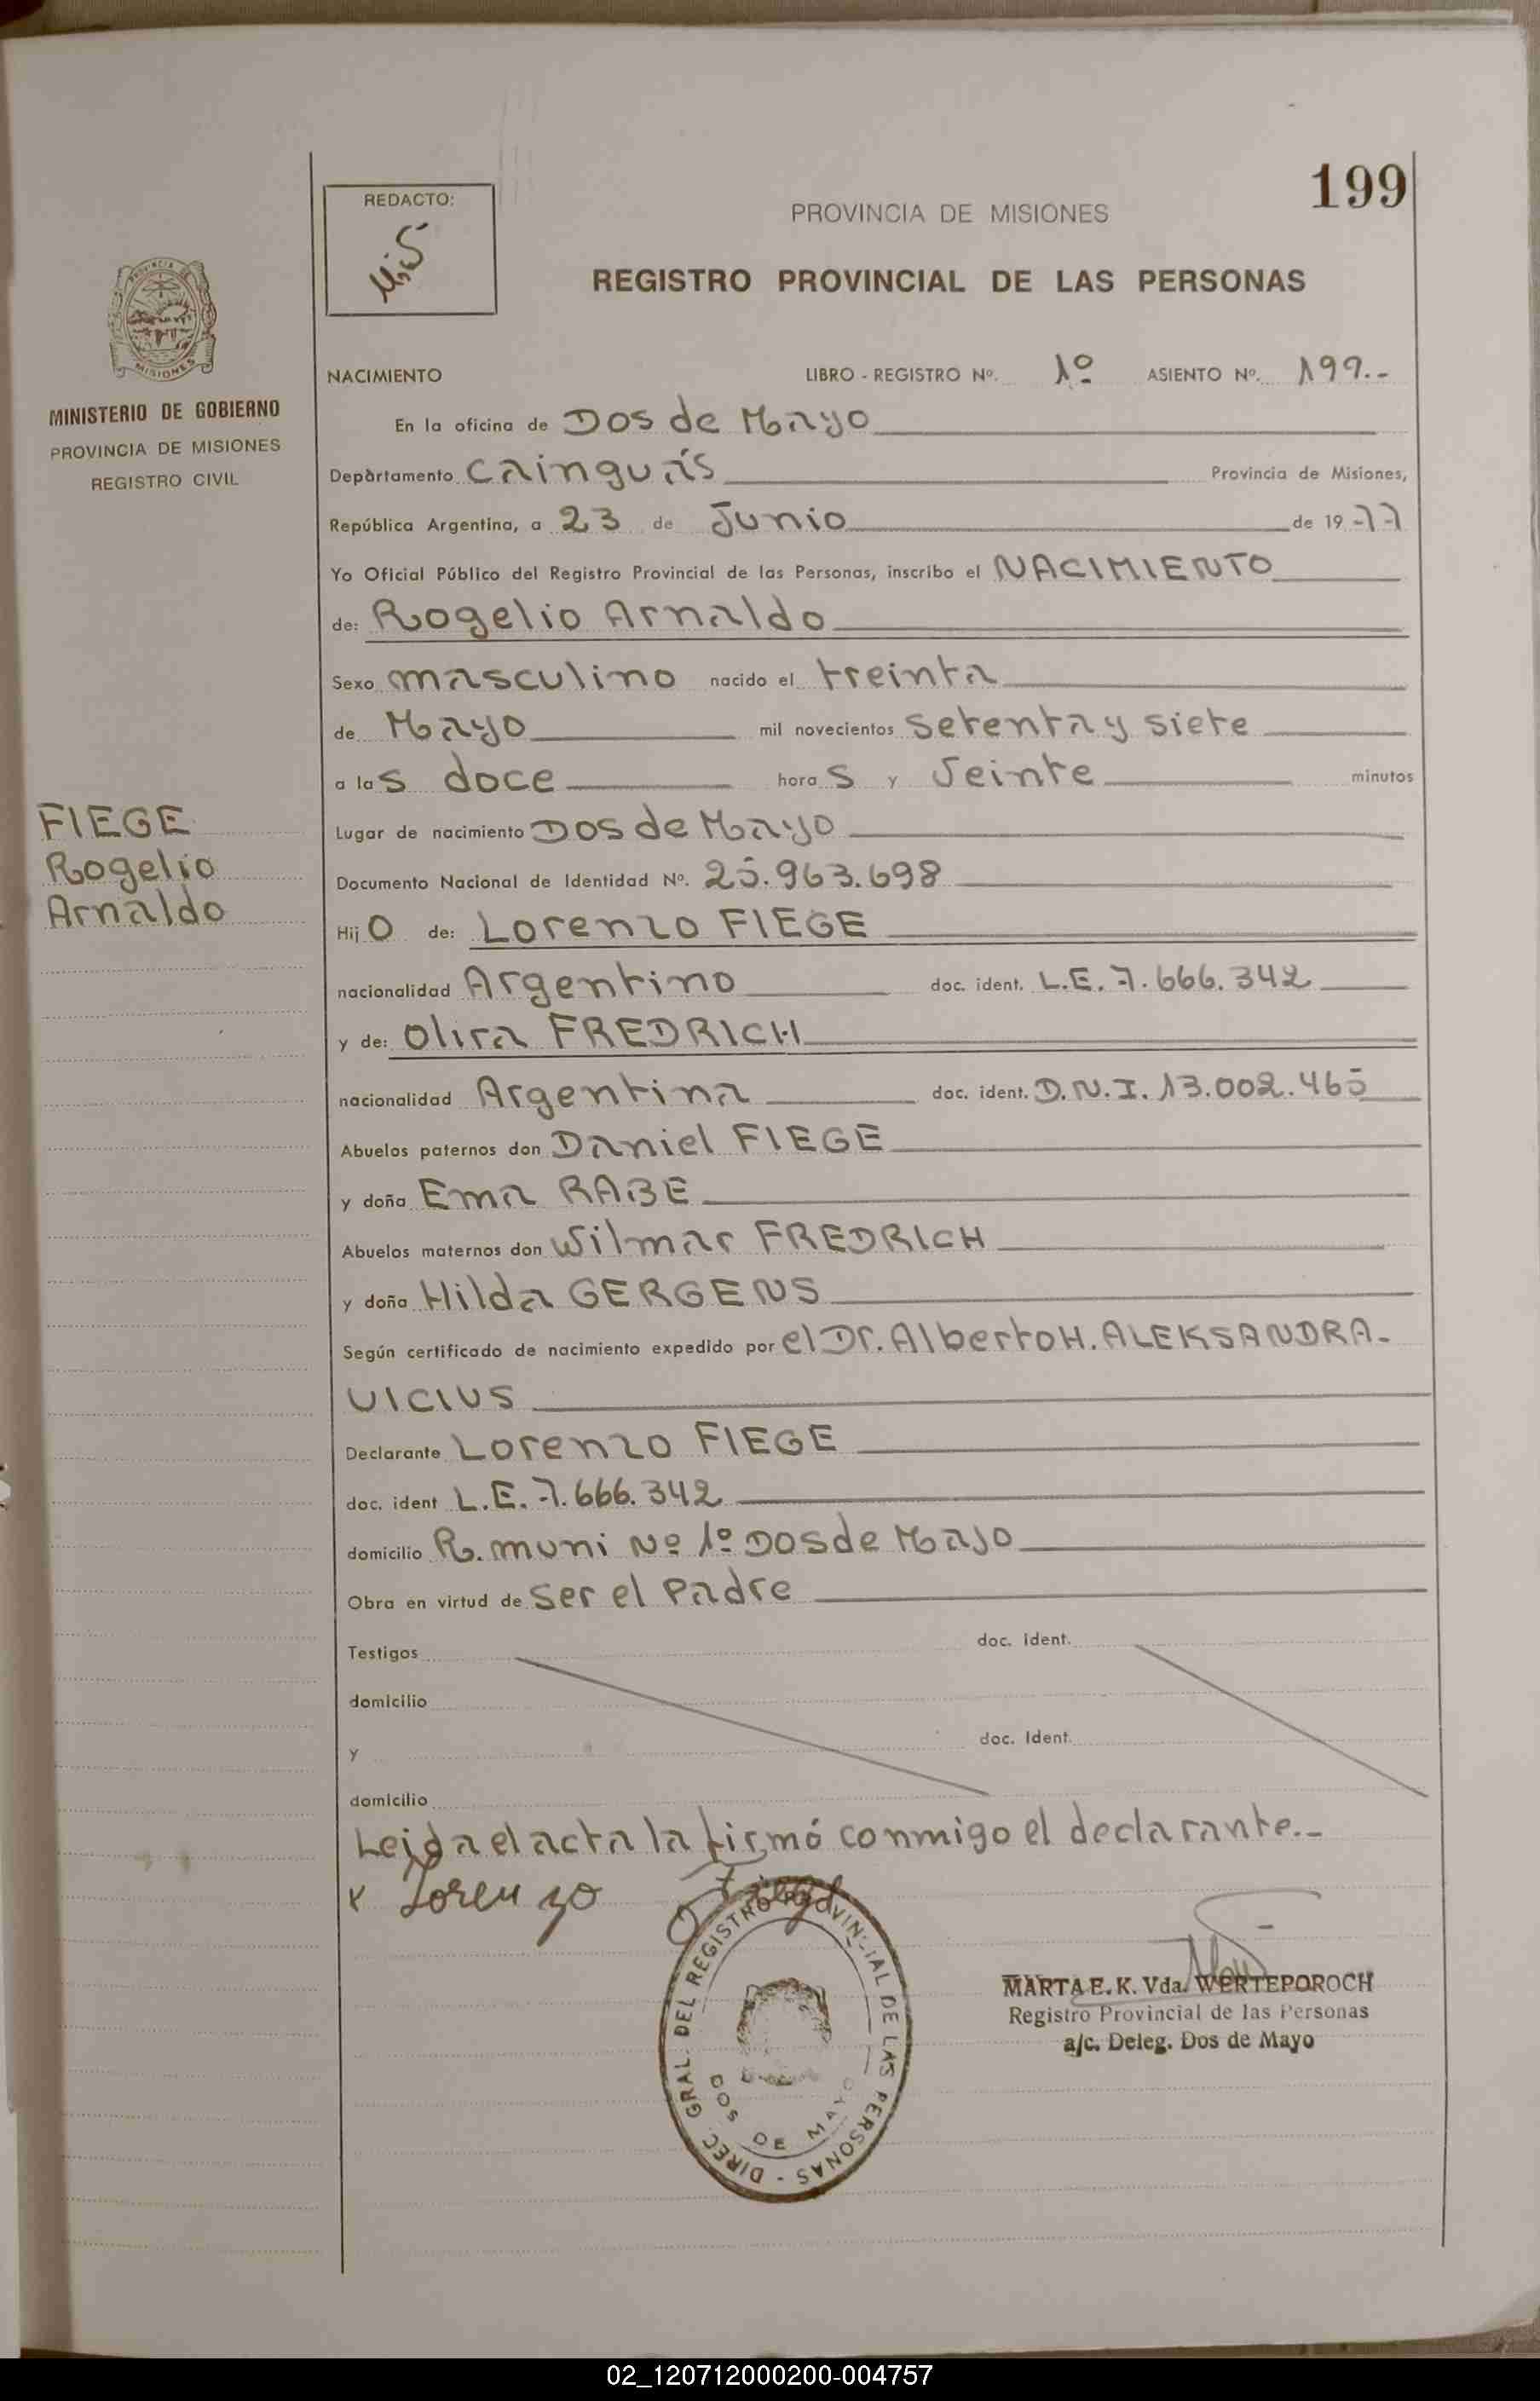 199
REDACTO:
PROVINCIA DE MISIONES
REGISTRO PROVINCIAL DE LAS PERSONAS
PROVINCIA DE
MISIONES
MINISTERIO DE GOBIERNO
PROVINCIA DE MISIONES
REGISTRO CIVIL
FIEGE
Rogelio
Arnaldo
NACIMIENTO LIBRO - REGISTRO Nº. 1º ASIENTO Nº. 199.-
En la oficina de Dos de Mayo
Departamento Cainguás Provincia de Misiones,
República Argentina, a 23 de Junio de 19 77
Yo Oficial Público del Registro Provincial de las Personas, inscribo el NACIMIENTO
de: Rogelio Arnaldo
Sexo masculino nacido el treinta
de Mayo mil novecientos setenta y siete
a las doce horas y veinte minutos
Lugar de nacimiento Dos de Mayo
Documento Nacional de Identidad Nº. 25.963.698
Hijo de: Lorenzo FIEGE
nacionalidad Argentino doc. ident. L.E. 7.666.342
y de: Olira FREDRICH
nacionalidad Argentina doc. ident. D.N.I. 13.002.465
Abuelos paternos don Daniel FIEGE
y doña Ema RABE
Abuelos maternos don Wilmar FREDRICH
y doña Hilda GERGENS
Según certificado de nacimiento expedido por el Dr. Alberto H. ALEKSANDRA-
VICIUS
Declarante Lorenzo FIEGE
doc. ident L.E. 7.666.342
domicilio R. muni Nº 1º Dos de Mayo
Obra en virtud de ser el Padre
Testigos doc. ident.
domicilio
y doc. ident.
domicilio
Leida el acta la firmó conmigo el declarante.-
x Lorenzo Fiege
DIREC. GRAL. DEL REGISTRO PROVINCIAL DE LAS PERSONAS -
DOS DE MAYO
MARTA E. K. Vda. WERTEPOROCH
Registro Provincial de las Personas
a/c. Deleg. Dos de Mayo
02_120712000200-004757